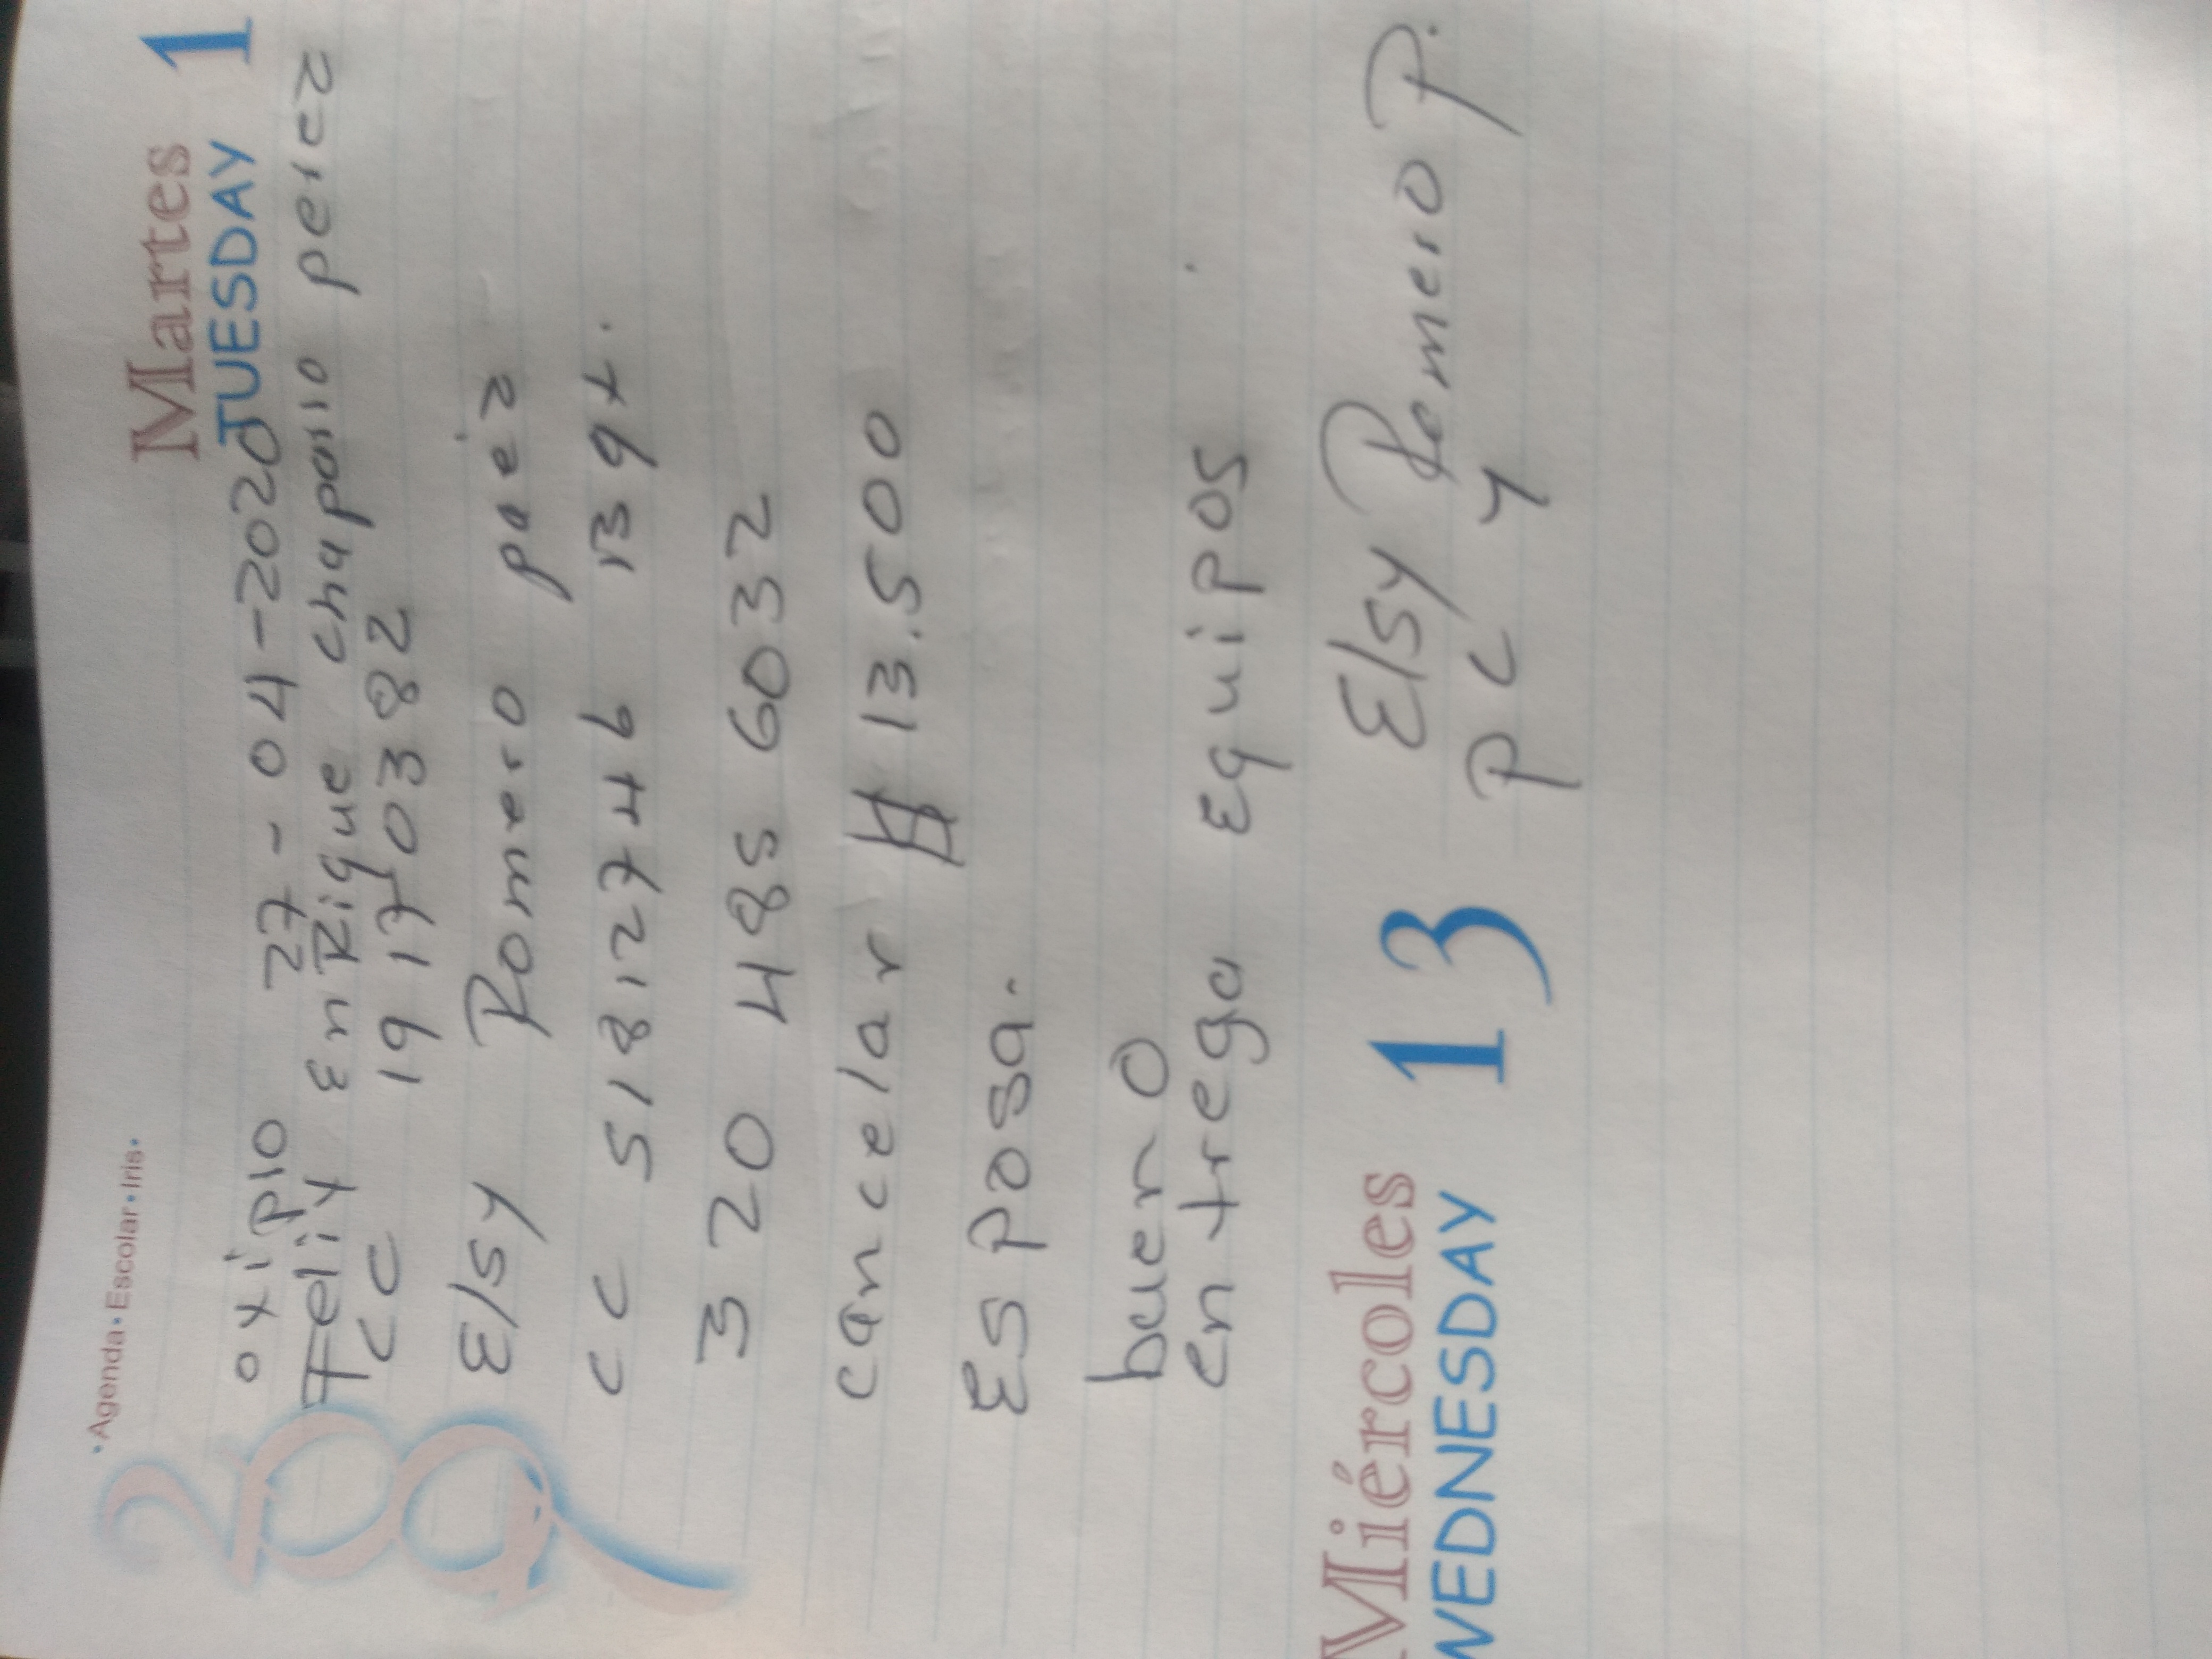 •Agenda•Escolar•Iris•
Martes 1
TUESDAY
2009
oxipio 27-04-2020
Feliy EnRique chaparro perez
CC 19 170382
Elsy Romero paez
CC 5181 27746 B 9+.
3 20 485 6032
cancelar $ 13.500
Esposa.
buen0
entrega Equipos
Miércoles 13
WEDNESDAY
Elsy Romero P.
P C Y